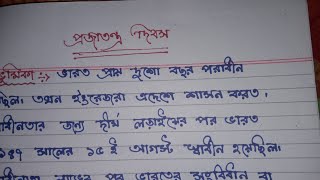 প্রজাতন্ত্র দিবস
ভূমিকা :- ভারত প্রায় দুশো বছর পরাধীন
ছিল। তখন ইংরেজরা এদেশে শাসন করত।
স্বাধীনতার জন্য দীর্ঘ লড়াইয়ের পর ভারত
১৯৪৭ সালের ১৫ই আগস্ট স্বাধীন হয়েছিল।
পর ভারতের সংবিধান বা